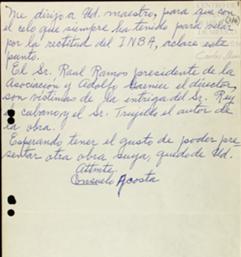 Me dirijo a Ud. maestro, para que con
el celo que siempre ha tenido para velar
por la rectitud del INBA, aclare este
punto.
El Sr. Raul Ramos presidente de la
Asociacion y Adolfo Garnier el director,
son victimas de la entrega del Sr. Rey
el cubano, y el Sr. Trujillo el autor de
la obra.
Esperando tener el gusto de poder pre-
sentar otra obra suya, quedo de Ud.
Attmte.
Consuelo Acosta